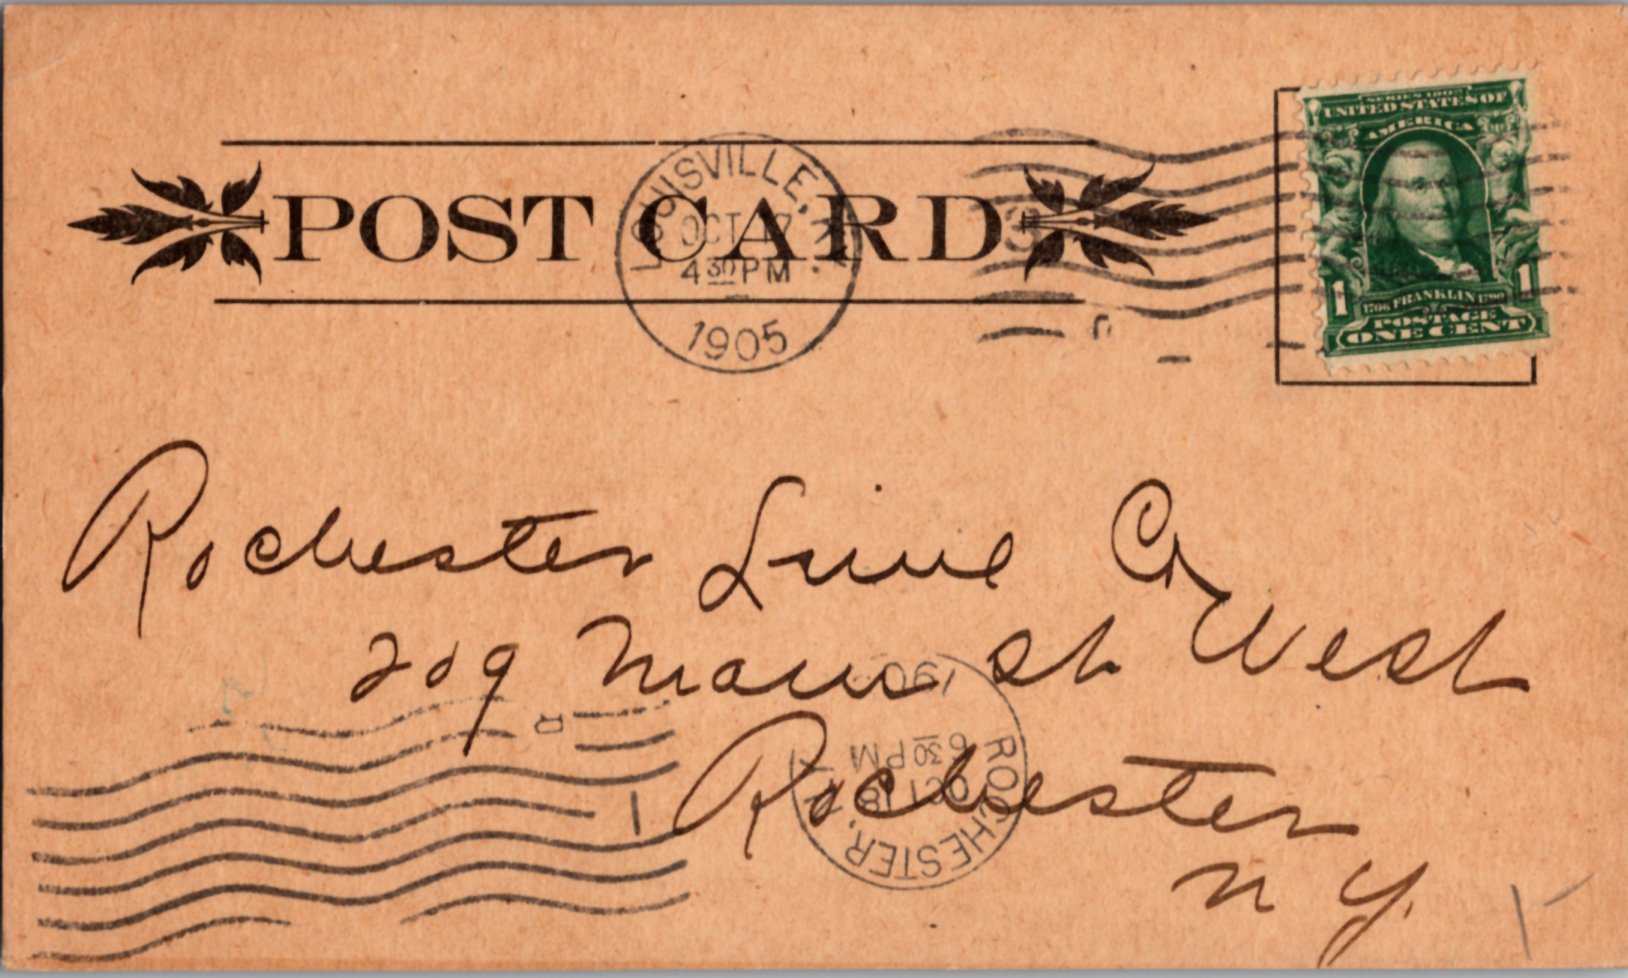 SERIES 1902
UNITED STATES OF
AMERICA
POST CARD
LOUISVILLE, KY.
OCT 17
4 30 PM
1905
1 1
1706 FRANKLIN 1790
POSTAGE
ONE CENT
Rochester Lime Co
209 Main St West
Rochester
N Y.
ROCHESTER, N.Y.
OCT 18
6 30 PM
190